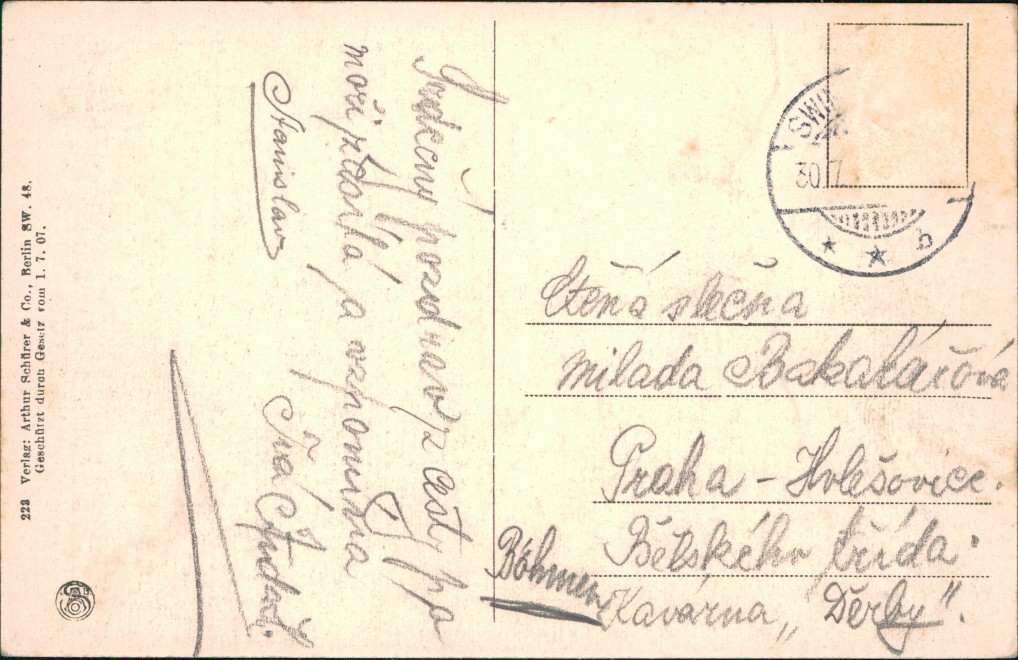 Srdečný pozdrav z cesty po
moři zasílá a vzpomíná
Ivá
Stanislav
Ctěná slečna
Milada Bakalářová
Praha - Holešovice.
Bělského třída.
Böhmen
Kavárna „Derby".
SWIN
30.7
b
223 Verlag: Arthur Schürer & Co., Berlin SW. 48.
Geschützt durch Gesetz vom 1. 7. 07.